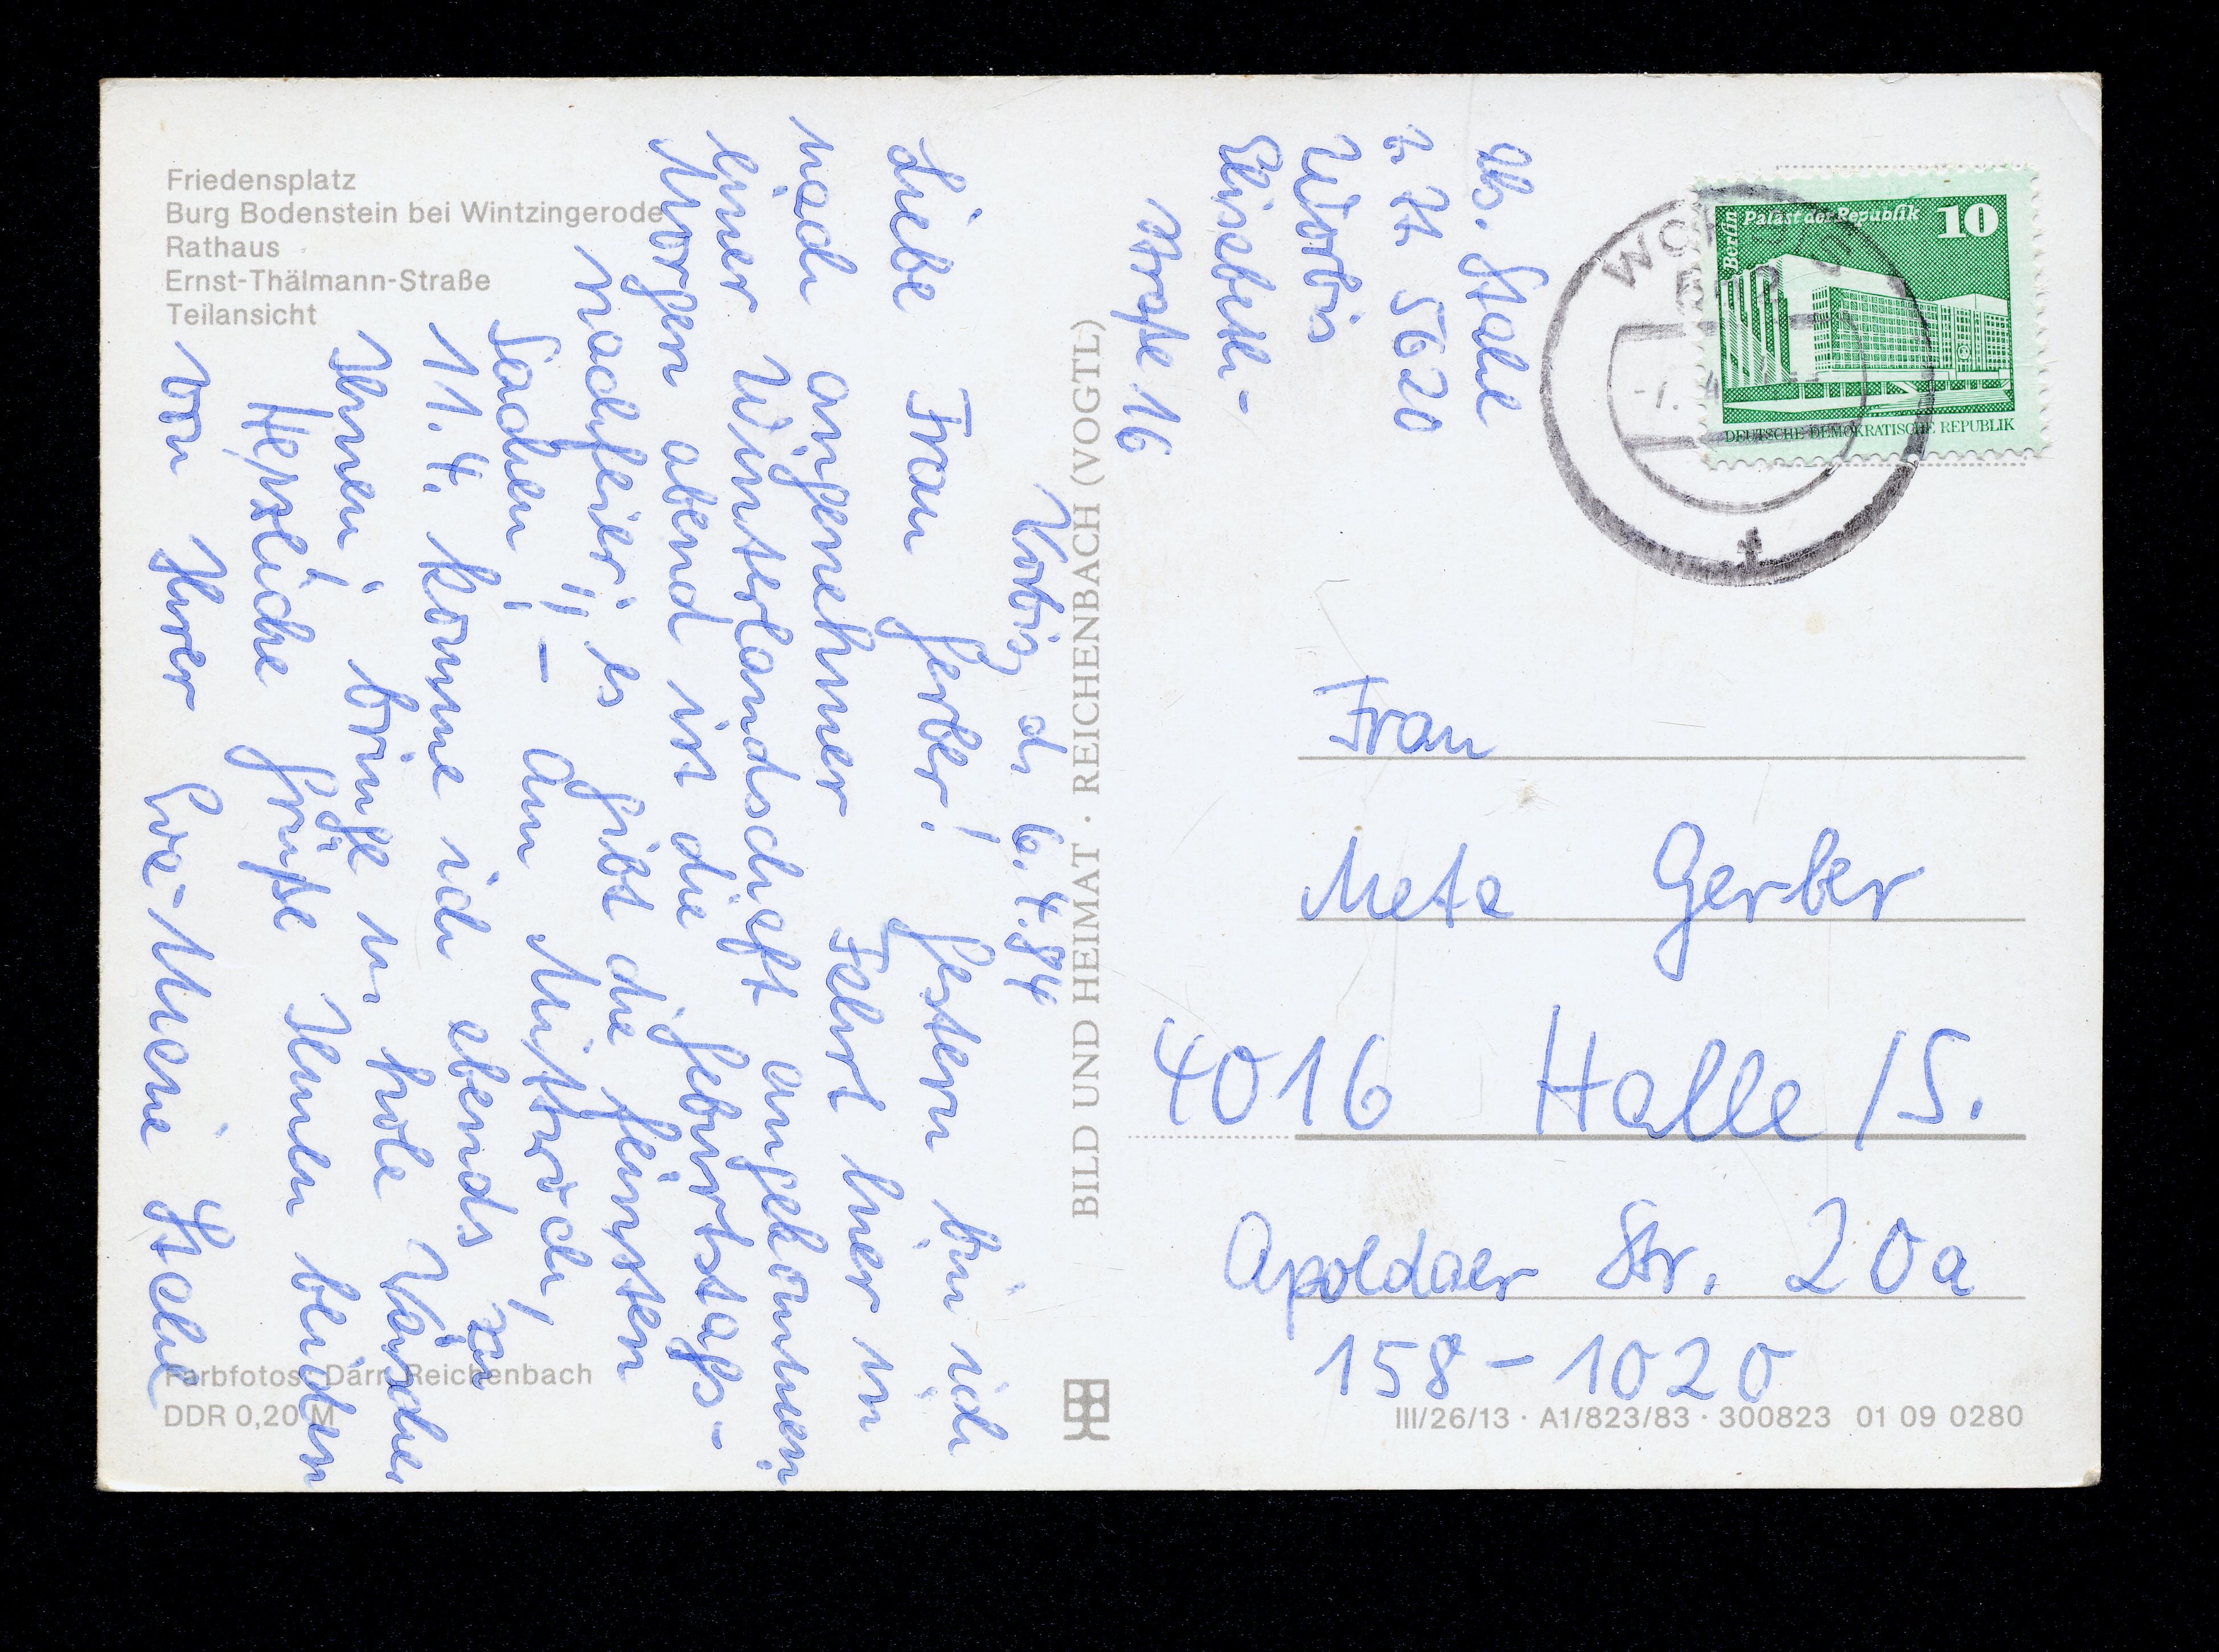 Friedensplatz
Burg Bodenstein bei Wintzingerode
Rathaus
Ernst-Thälmann-Straße
Teilansicht
Worbis, d. 6.4.84
Liebe Frau Gerber! Gestern bin ich
nach angenehmer Fahrt hier in
einer Winterlandschaft angekommen.
Morgen abend ist die Geburtstags-
nachfeier, es gibt die feinsten
Sachen! – Am Mittwoch,
11.4. komme ich abends zu
Ihnen, bringe u. hole Wäsche
Herzliche Grüße Ihnen beiden
von Ihrer Eva-Marie Stahl
Farbfotos: Darr, Reichenbach
DDR 0,20 M
BILD UND HEIMAT · REICHENBACH (VOGTL)
Abs. Stahl
z. Zt. 5620
Worbis
Elisabeth-
straße 16
Berlin Palast der Republik 10
DEUTSCHE DEMOKRATISCHE REPUBLIK
Frau
Meta Gerber
4016 Halle /S.
Apoldaer Str. 20a
158-1020
III/26/13 · A1/823/83 · 300823 01 09 0280